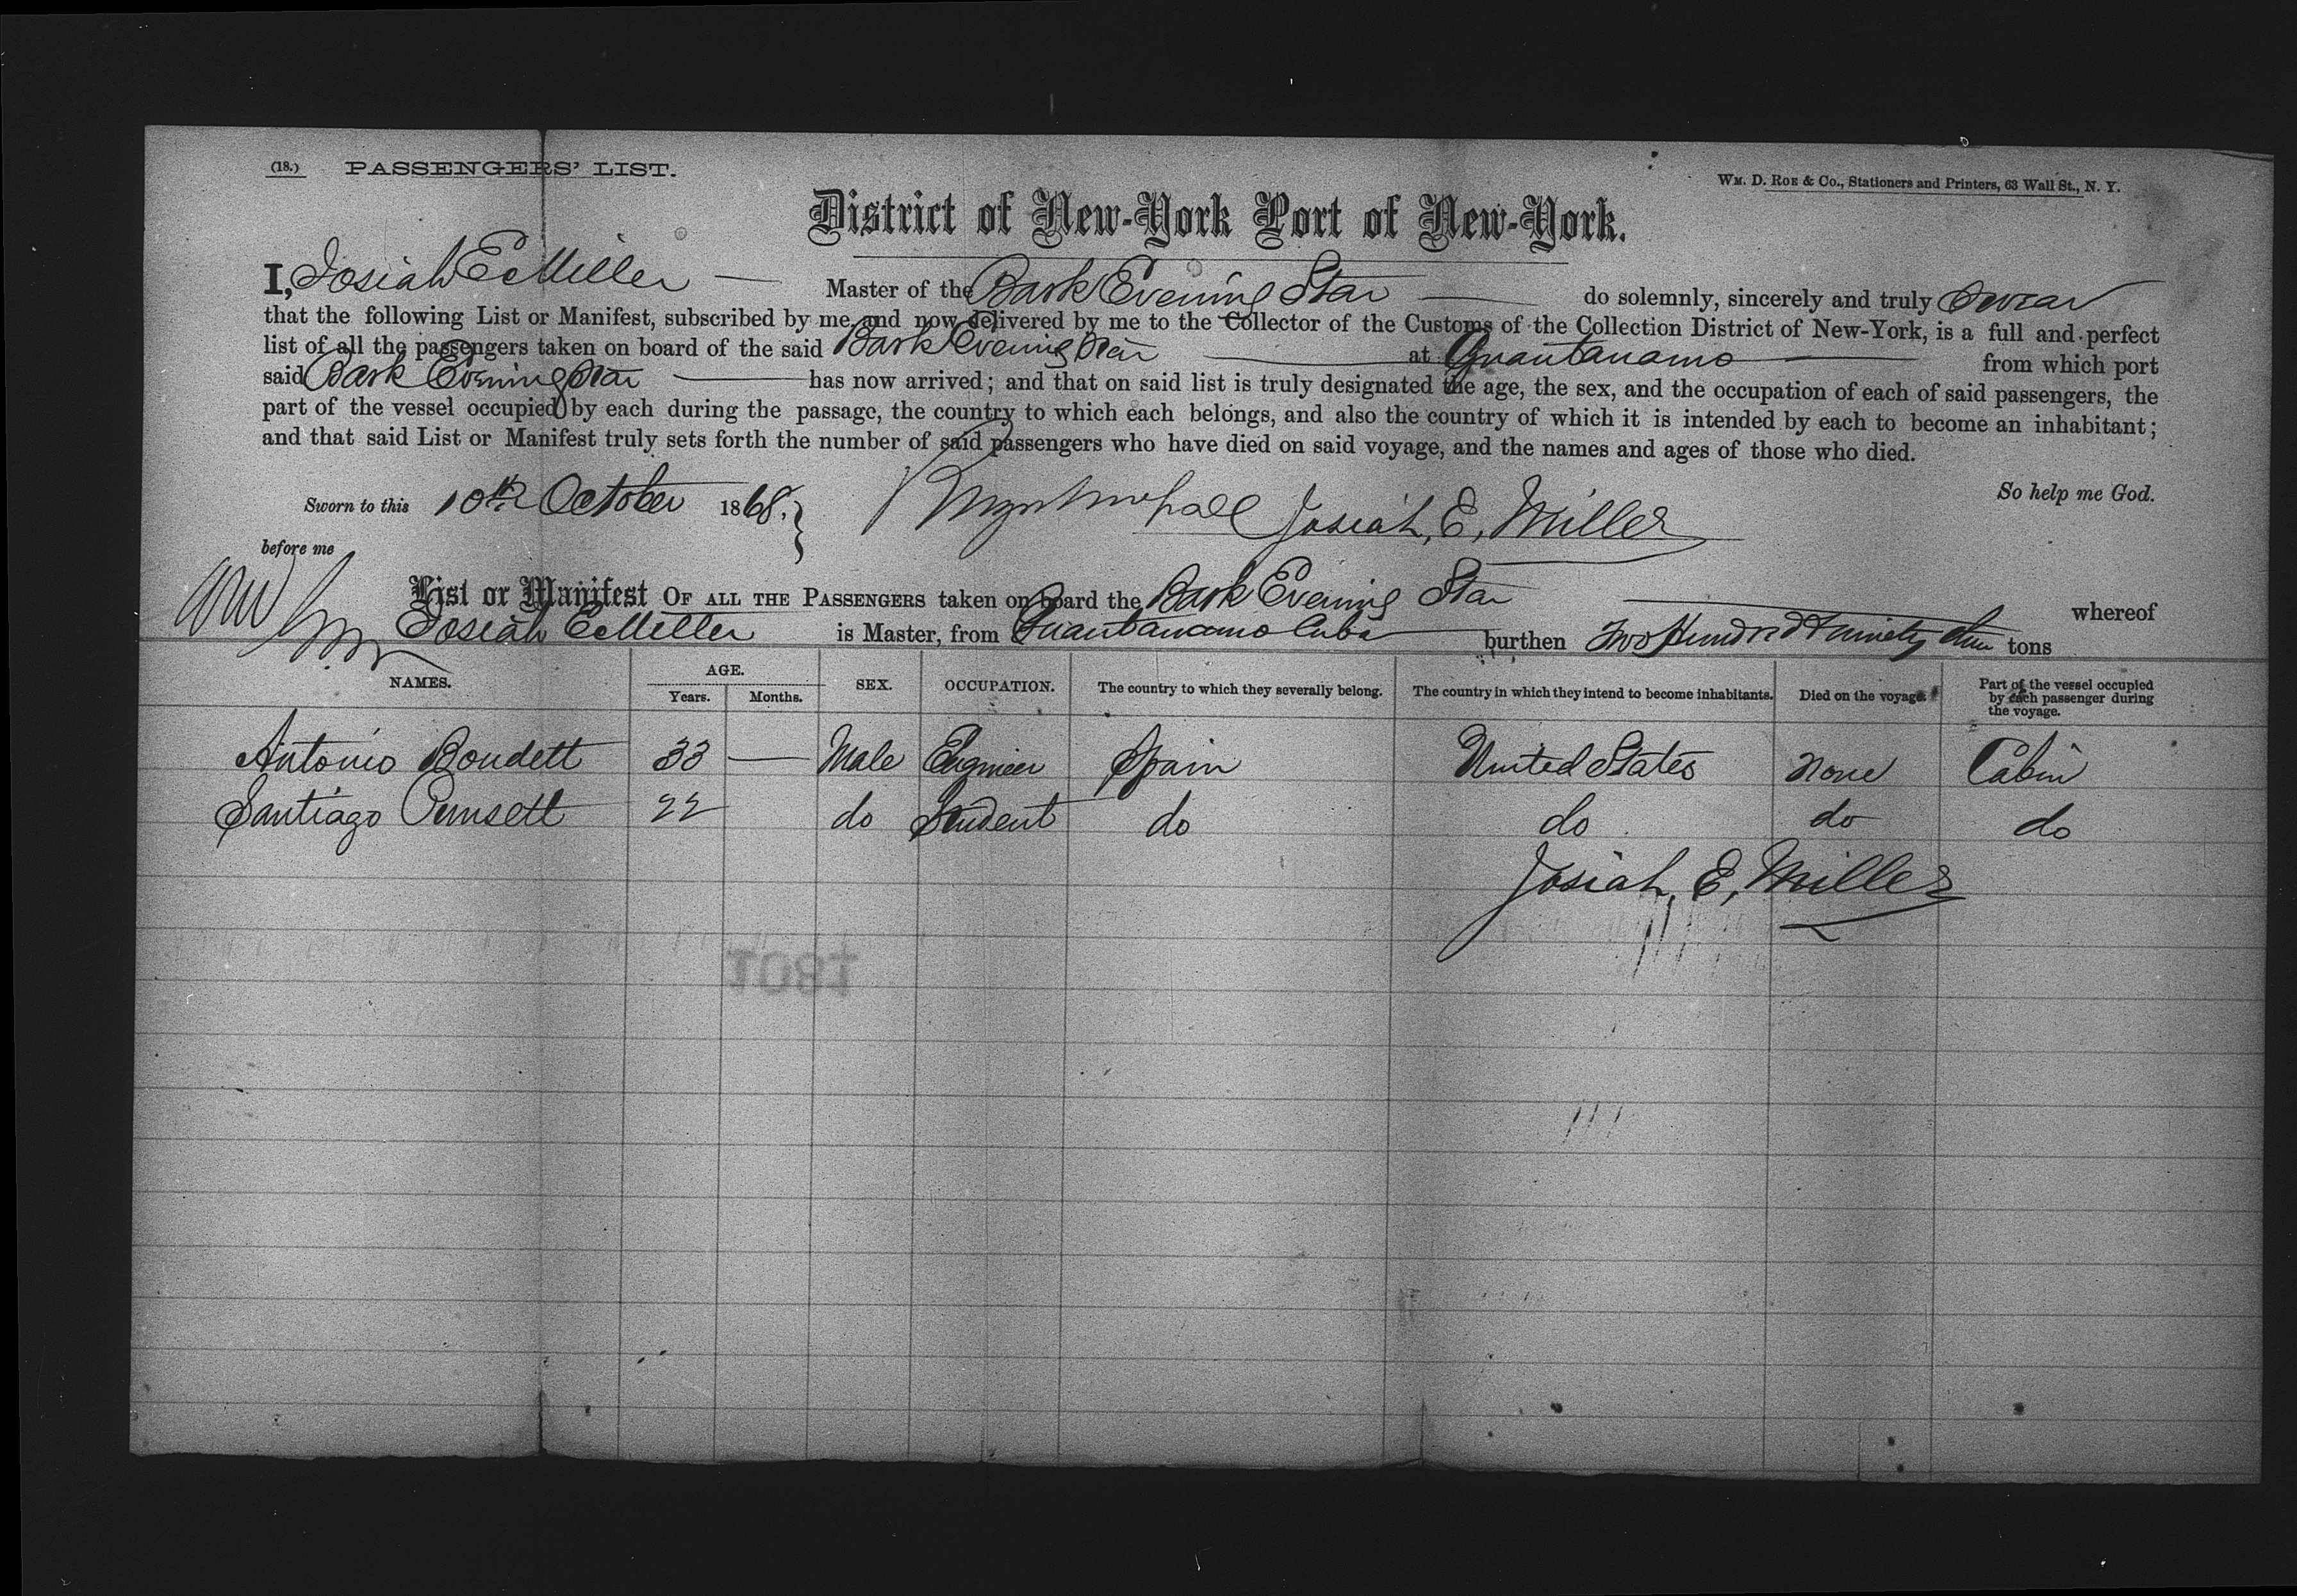 (18.) PASSENGERS' LIST.
Wm. D. Roe & Co., Stationers and Printers, 63 Wall St., N. Y.
District of New-York Port of New-York.
I, Josiah E Miller Master of the Bark Evening Star do solemnly, sincerely and truly swear
that the following List or Manifest, subscribed by me, and now delivered by me to the Collector of the Customs of the Collection District of New-York, is a full and perfect
list of all the passengers taken on board of the said Bark Evening Star at Guantanamo from which port
said Bark Evening Star has now arrived; and that on said list is truly designated the age, the sex, and the occupation of each of said passengers, the
part of the vessel occupied by each during the passage, the country to which each belongs, and also the country of which it is intended by each to become an inhabitant;
and that said List or Manifest truly sets forth the number of said passengers who have died on said voyage, and the names and ages of those who died.
So help me God.
Sworn to this 10th October 1868. Josiah, E, Miller
before me
List or Manifest OF ALL THE PASSENGERS taken on board the Bark Evening Star whereof
Josiah E Miller is Master, from Guantanamo Cuba burthen Two Hundred & ninety tons
NAMES. AGE. Years. Months. SEX. OCCUPATION. The country to which they severally belong. The country in which they intend to become inhabitants. Died on the voyage. Part of the vessel occupied by each passenger during the voyage.
Antonio Boudett 33 — Male Engineer Spain United States None Cabin
Santiago 22 do Student do do do do
Josiah, E, Miller